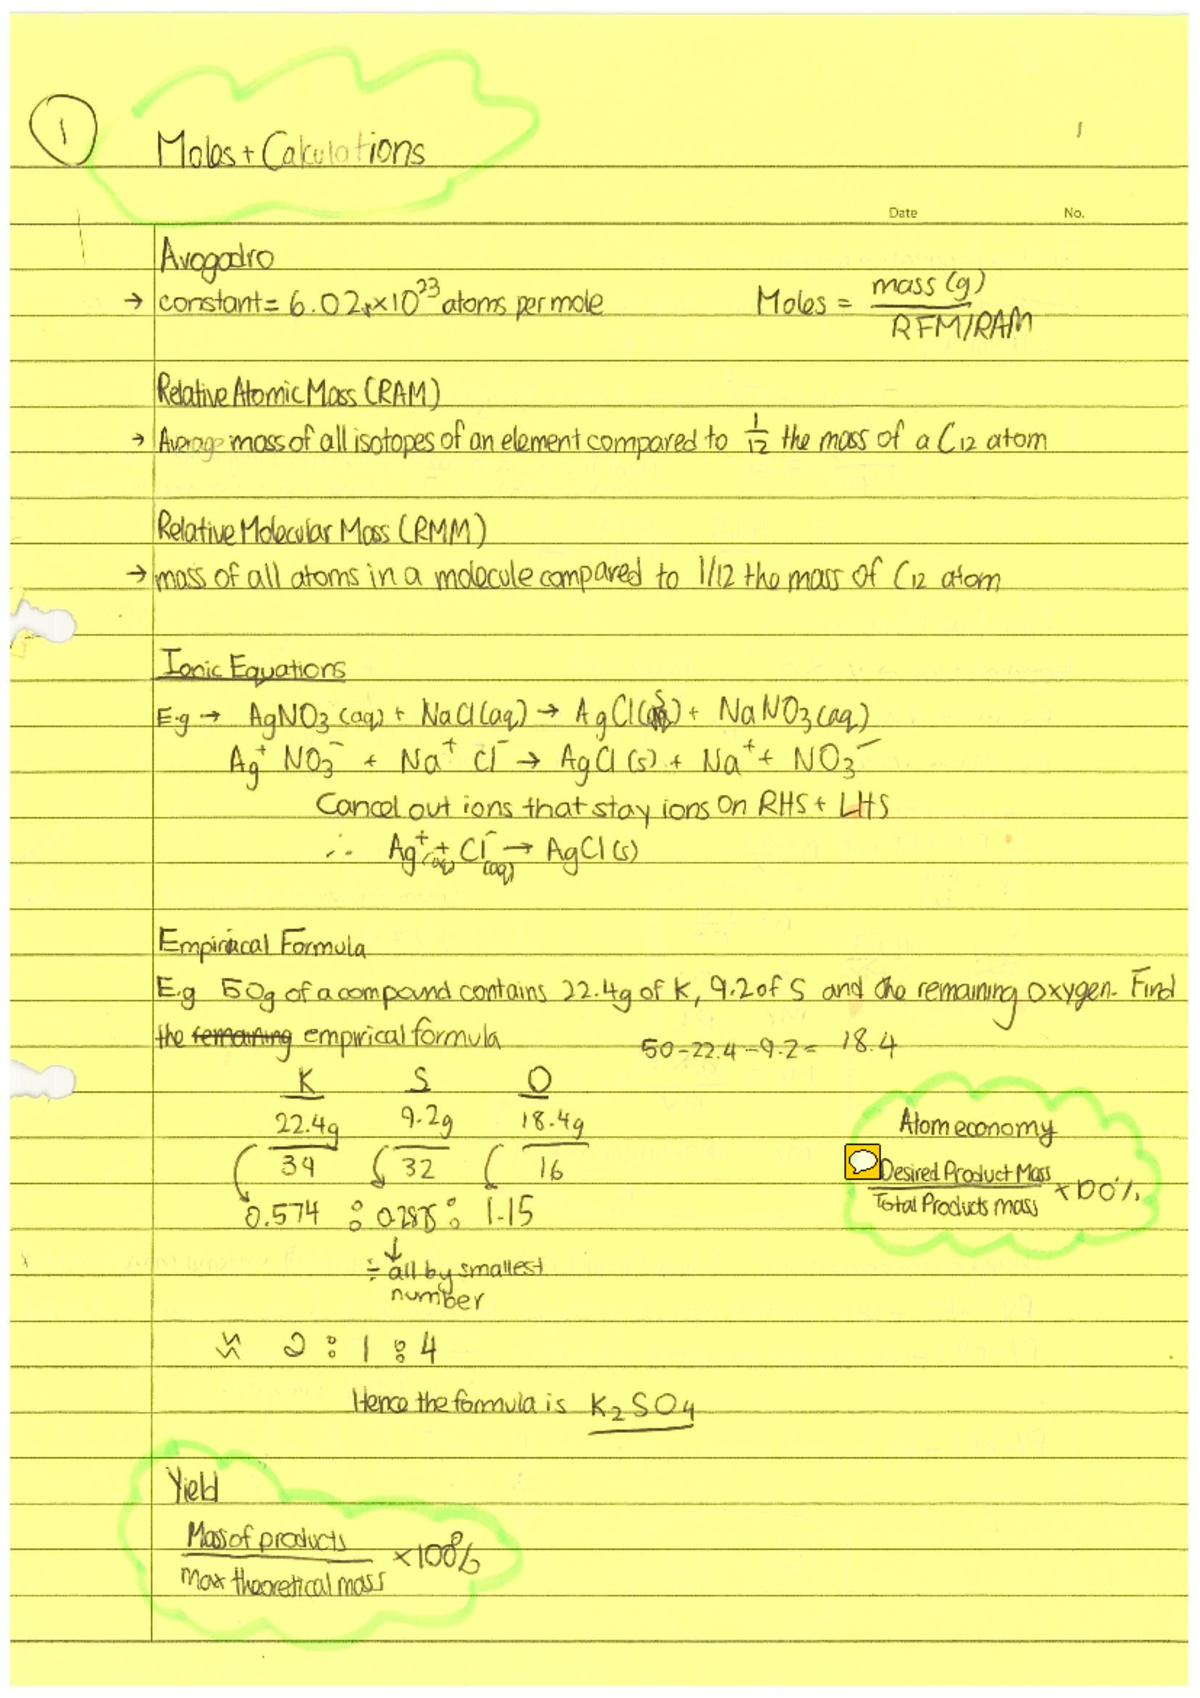 1
1
Moles + Calculations
Date No.
Avogadro
→ constant = 6.02 × 10²³ atoms per mole
Moles = mass (g) / RFM/RAM
Relative Atomic Mass (RAM)
→ Average mass of all isotopes of an element compared to 1/12 the mass of a C12 atom
Relative Molecular Mass (RMM)
→ mass of all atoms in a molecule compared to 1/12 the mass of C12 atom
Ionic Equations
E.g → AgNO₃ (aq) + NaCl (aq) → AgCl (s) + NaNO₃ (aq)
Ag⁺ NO₃⁻ + Na⁺ Cl⁻ → AgCl (s) + Na⁺ + NO₃⁻
Cancel out ions that stay ions on RHS + LHS
∴ Ag⁺(aq) + Cl⁻(aq) → AgCl (s)
Empirical Formula
E.g 50g of a compound contains 22.4g of K, 9.2 of S and the remaining oxygen. Find
the remaining empirical formula
50-22.4-9.2= 18.4
K S O
22.4g 9.2g 18.4g
39 32 16
0.574 : 0.2875 : 1.15
↓
÷ all by smallest
number
≈ 2 : 1 : 4
Hence the formula is K₂SO₄
Atom economy
Desired Product Mass / Total Products mass × 100%
Yield
Mass of products / max theoretical mass × 100%